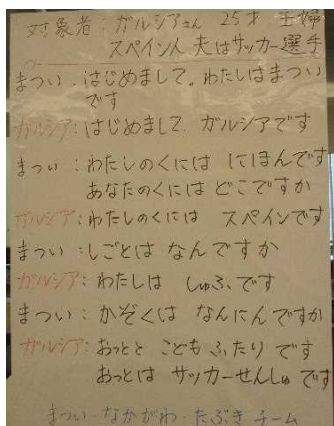 対象者:ガルシアさん 25才 主婦
スペイン人 夫はサッカー選手
まつい:はじめまして。わたしはまつい
です
ガルシア:はじめまして ガルシアです
まつい:わたしのくには にほんです
あなたのくには どこですか
ガルシア:わたしのくには スペインです
まつい:しごとは なんですか
ガルシア:わたしは しゅふです
まつい:かぞくは なんにんですか
ガルシア:おっとと こどもふたり です
おっとは サッカーせんしゅ です
まつい・なかがわ・たぶき チーム